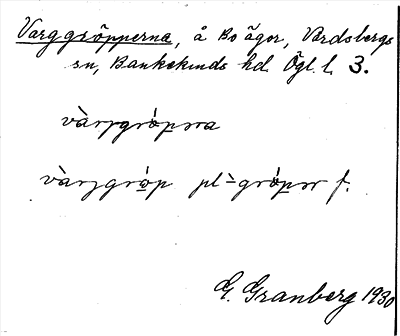 Varggröpperna, å Bo ägor, Vårdsbergs
sn, Bankekinds hd. Ögl. l. 3.
vàrjgrópǝrna
vàrjgróp pl -̀gróper f.
G. Granberg 1930